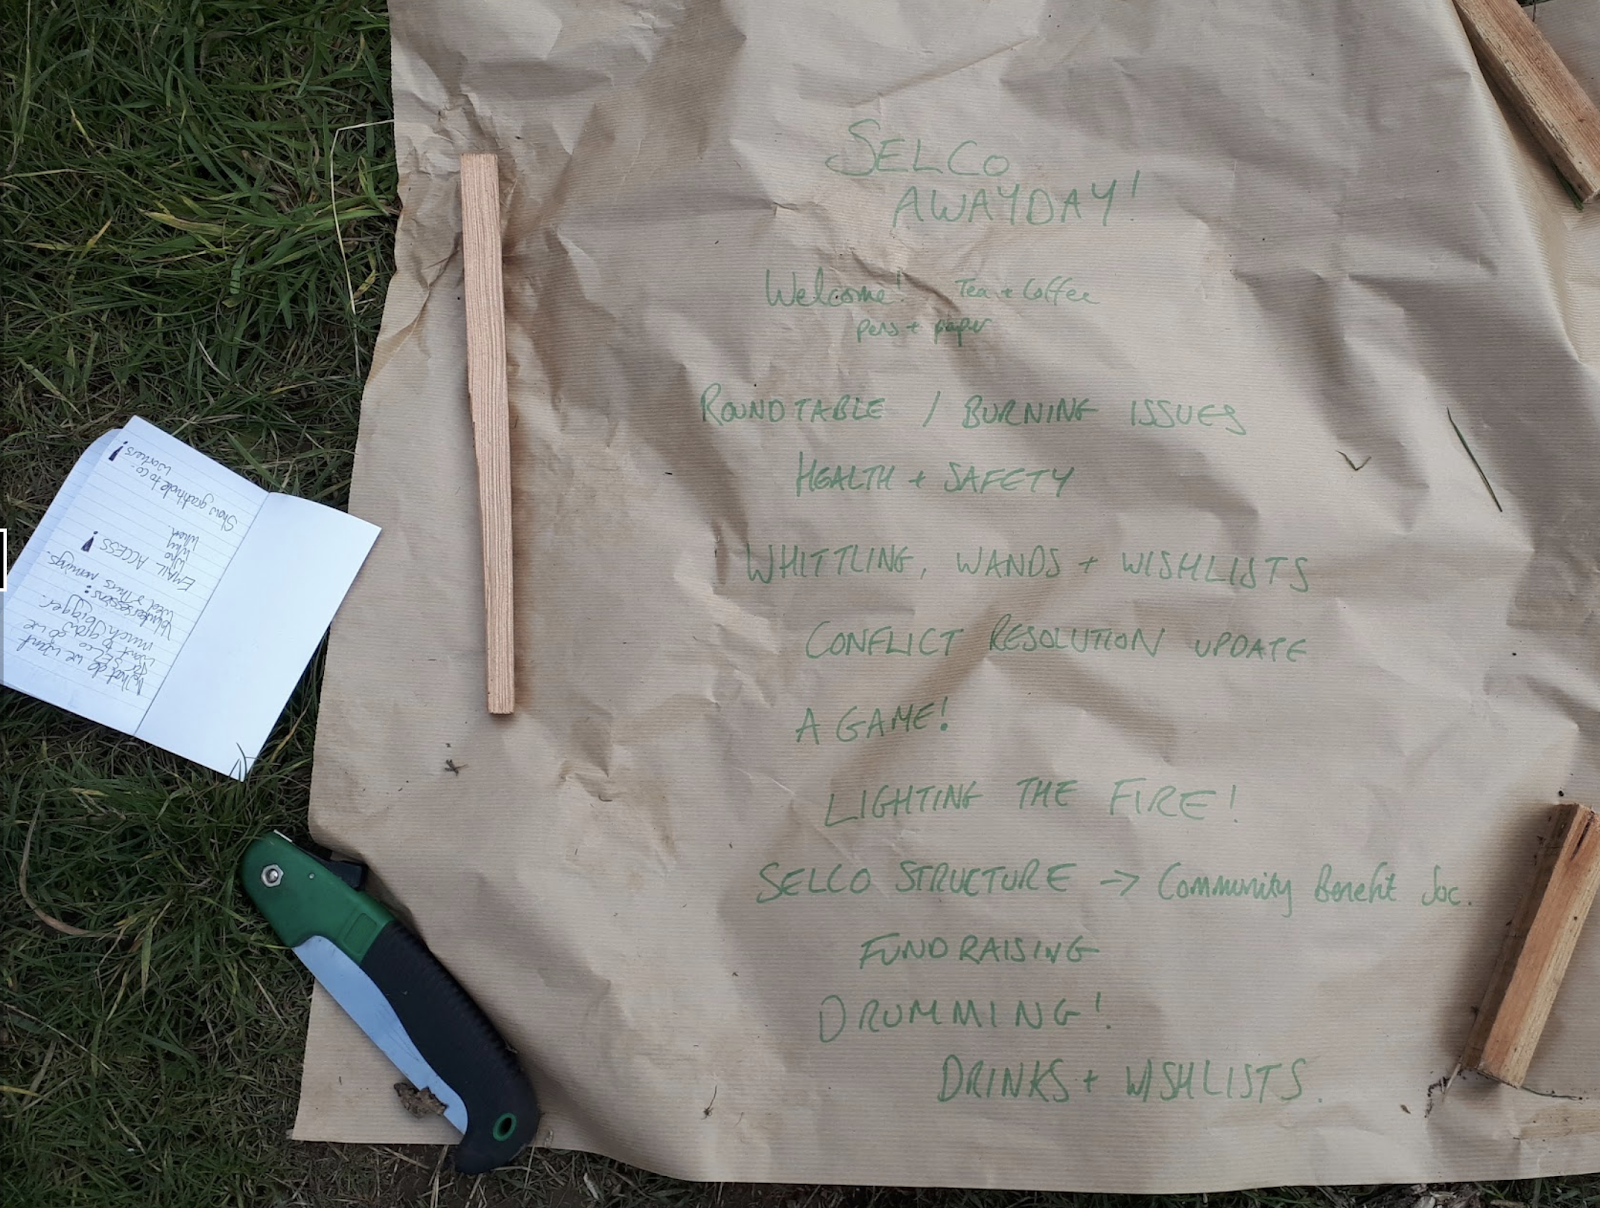 SELCO
AWAYDAY!
Welcome! Tea + Coffee
pens + paper
ROUNDTABLE / BURNING ISSUES
HEALTH + SAFETY
WHITTLING, WANDS + WISHLISTS
CONFLICT RESOLUTION UPDATE
A GAME!
LIGHTING THE FIRE!
SELCO STRUCTURE → Community Benefit Soc.
FUNDRAISING
DRUMMING!
DRINKS + WISHLISTS.
What do we want
for SELCO - do we
want to grow, so it
much bigger.
Wed & Thurs mornings.
EMAIL ACCESS!
Who
Why
When.
Show gratitude to co-
workers!